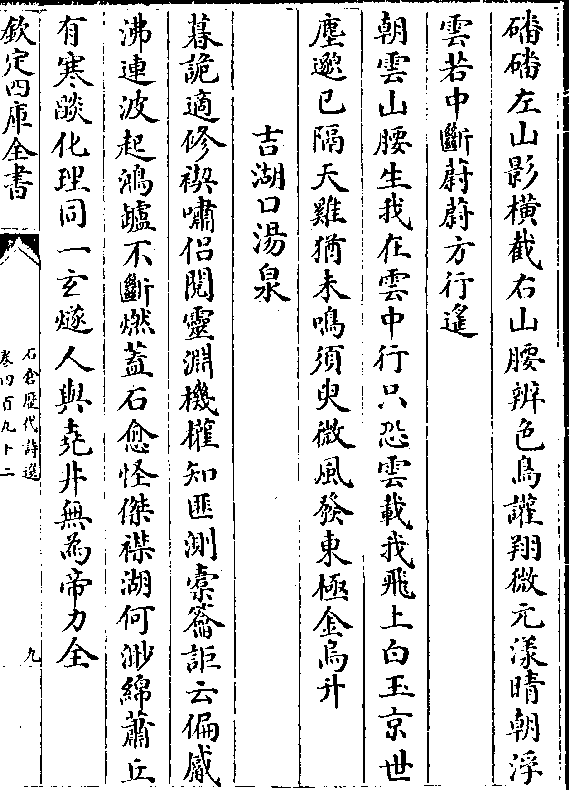 磻磻左山影橫截右山腰辨色鳥讙翔微元漾晴朝浮
雲若中斷蔚蔚方行遙
朝雲山腰生我在雲中行只恐雲載我飛上白玉京世
塵邈已隔天雞猶未鳴須臾微風發東極金烏升
吉湖口湯泉
暮詭適修禊嘯侣閱靈淵機權知匪測橐籥詎云偏感
沸連波起鴻罏不斷燃蓋石愈怪傑襟湖何渺綿蕭丘
有寒燄化理同一玄燧人與堯井無為帝力全
欽定四庫全書
石倉歷代詩選
卷四百九十二
九